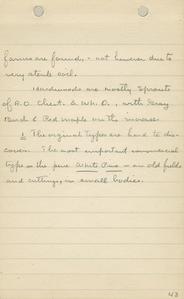 farms are found, - not however due to
very sterile soil.
Hardwoods are mostly sprouts
of R.O. Chest. & Wh.O., with Gray
Birch & Red maple on the increase.
The original types are hard to dis-
cover. The most important commercial
type is the pure White Pine - on old fields
and cuttings, in small bodies.
43